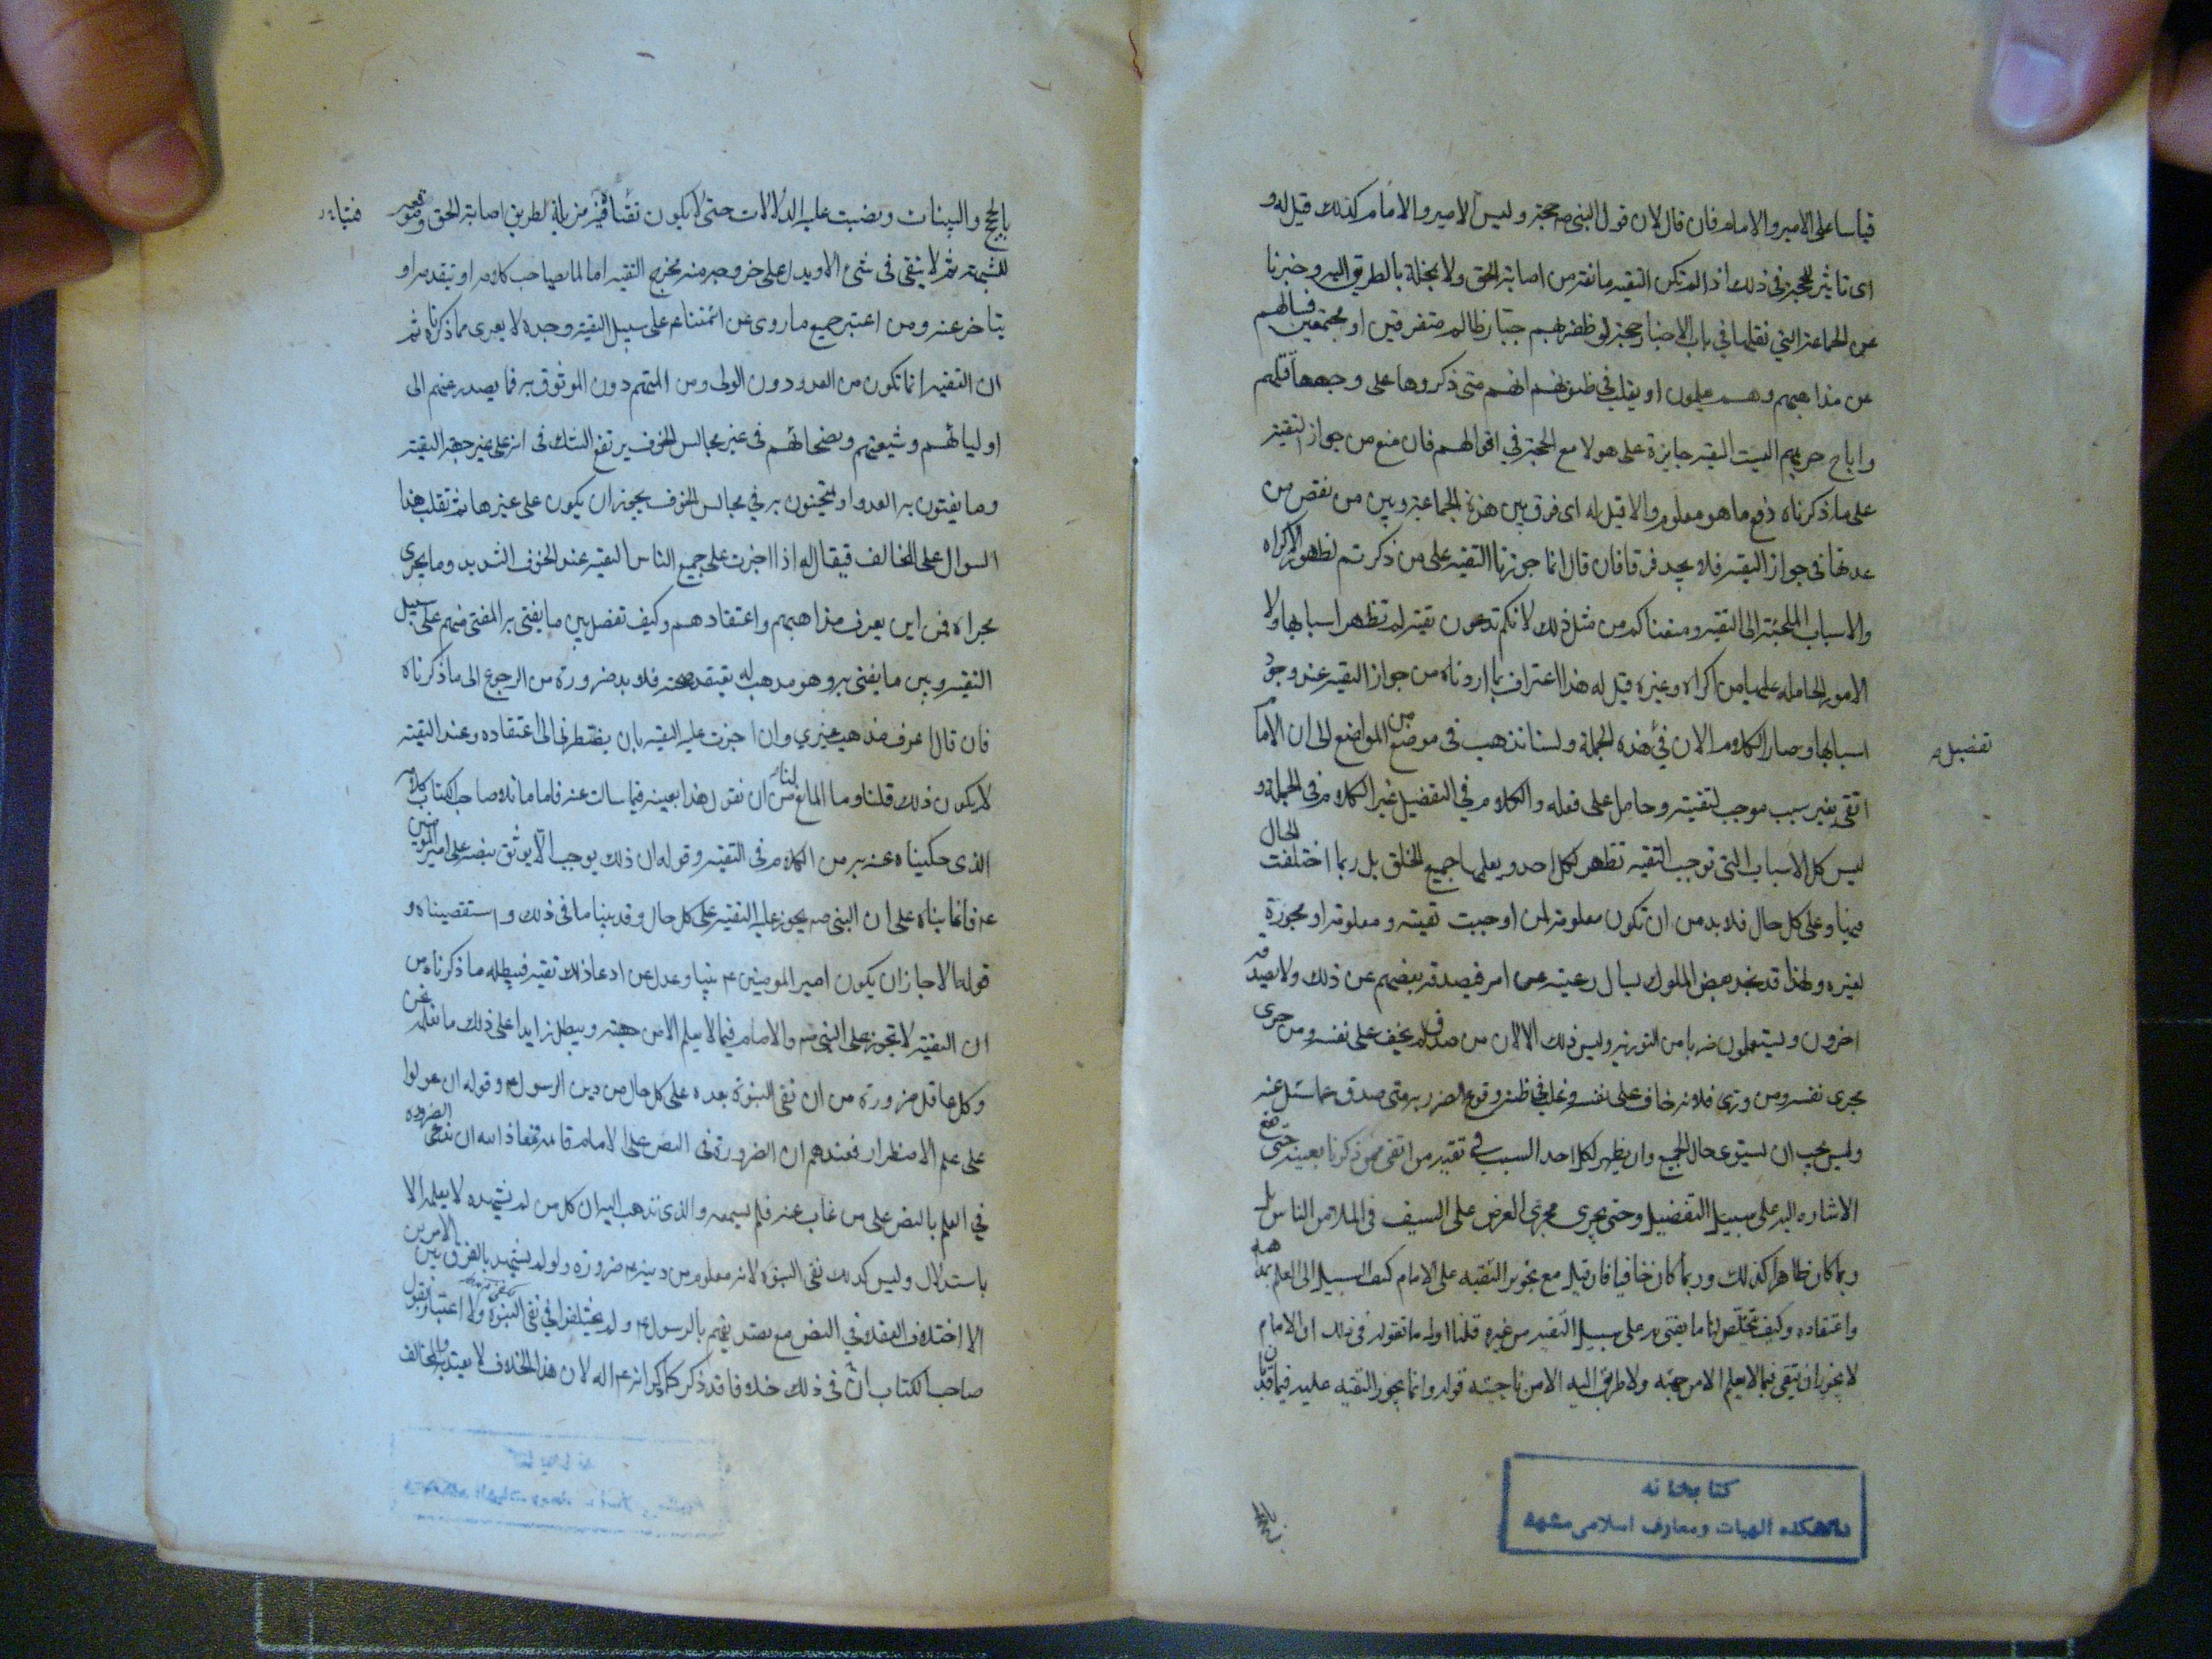 قياسا على الامير والامام فان قال لان قول النبى ص حجة وليس الامير والامام كذلك قيل له و
اى تاثير للحجة فى ذلك اذا لم تكن التقيه مانعة من اصابة الحق ولا بمخلة بالطريق اليه وخبرنا
عن الجماعة التي نقلها في باب الاخبار حجة لو ظفر بهم جبار ظالم متفرقين او مجتمعين فسالهم
عن مذاهبهم وهم يعلمون او يغلب في ظنونهم انهم متى ذكروها على وجهها قتلهم
واباح حريمهم اليست التقيه جايزة على هولا مع الحجة في اقوالهم فان منع من جواز التقية
على ما ذكرناه دفع ما هو معلوم والا قيل له اى فرق بين هذه الجماعة وبين من نقص من
عدتها فى جواز التقيه فلا يجد فرقا فان قال انما جوزنا التقيه على من ذكرتم لظهور الاكراه
والاسباب الملجئة الى التقيه ومنعناكم من مثل ذلك لانكم تدعون تقية لم تظهر اسبابها ولا
الامور الحامله عليها من اكراه وغيره قيل له هذا اعتراف بما اردناه من جواز التقيه عند وجود
اسبابها وصار الكلام الان في هذه الجملة ولسنا نذهب فى موضع من المواضع الى ان الامام
تفصيل
اتقى بغير سبب موجب لتقيته وحامل على فعله والكلام في التفصيل غير الكلام في الجملة و
ليس كل الاسباب التى توجب التقيه تظهر لكل احد ويعلمها جميع الخلق بل ربما اختلفت الحال
فيها وعلى كل حال فلا بد من ان تكون معلومة لمن اوجبت تقيته ومعلومة او مجوزة
لغيره ولهذا قد نجد بعض الملوك يسال رعيته عن امر فيصدقه بعضهم عن ذلك ولا يصدقه
اخرون ويستعملون ضربا من التورية وليس ذلك الا لان من صدق لم يخف على نفسه ومن جرى
مجرى نفسه ومن ورى فلانه خاف على نفسه وغلب في ظنه وقوع الضرر به متى صدق عما سئل عنه
وليس يجب ان يستوى حال الجميع وان يظهر لكل احد السبب في تقية من اتقى ممن ذكرنا بعينه حتى تقع
الاشاره اليه على سبيل التفصيل وحتى يجرى مجرى العرض على السيف فى الملا من الناس بل
ربما كان ظاهرا كذلك وربما كان خافيا فان قيل مع تجويز التقيه على الامام كيف السبيل الى العلم بمذاهبه
واعتقاده وكيف تخلص لنا ما يفتى به على سبيل التقيه من غيره قلنا اول ما نقوله فى ذلك ان الامام
لا يجوز ان يتقى فيما لا يعلم الا من جهته ولا طريق اليه الا من ناحيته قوله وانما يجوز التقيه عليه فيما قد بان
كتابخانه
دانشكده الهيات ومعارف اسلامى مشهد
بالحجج والبينات ونصبت عليه الدلالات حتى لا يكون تقيا فيه مزيلة لطريق اصابة الحق وموقعه
فتياه
للشبهة ثم لا يتقى فى شئ الا ويدل على خروجه منه مخرج التقيه اما لما يصاحب كلامه او يتقدمه او
يتاخر عنه ومن اعتبر جميع ما روى عن ائمتنا ع على سبيل التقيه وجده لا يعرى مما ذكرناه ثم
ان التقيه انما تكون من العدو دون الولى ومن المتهم دون الموثوق به فما يصدر عنهم الى
اوليائهم وشيعتهم ونصحائهم فى غير مجالس الخوف يرتفع الشك فى انه على غير جهة التقية
وما يفتون به العدو او يمتحنون به في مجالس الخوف يجوز ان يكون على غيرها ثم تقلب هذا
السوال على المخالف فيقال له اذا اجزت على جميع الناس التقيه عند الخوف الشديد وما يجرى
مجراه فمن اين يعرف مذاهبهم واعتقادهم وكيف تفصل بين ما يفتى به المفتى منهم على سبيل
التقيه وبين ما يفتى به وهو مذهب له يعتقد صحته فلا بد ضرورة من الرجوع الى ما ذكرناه
فان قال اعرف مذهب غيري وان اجزت عليه التقيه بان يضطرنى الى اعتقاده وعند التقية
لا يكون ذلك قلنا وما المانع لنا من ان نقول هذا بعينه فيما سالت عنه فاما ما تلاه صاحب الكتاب كلامه
الذى حكيناه عنه من الكلام فى التقيه وقوله ان ذلك يوجب الا يوثق بنصه على امير المومنين
ع فانما بناه على ان النبى ص يجوز عليه التقيه على كل حال وقد بينا ما فى ذلك واستقصيناه و
قوله الا جاز ان يكون امير المومنين ع نبيا وعدل عن ادعا ذلك تقيه فيبطله ما ذكرناه من
ان التقية لا تجوز على النبى ص والامام فيما لا يعلم الا من جهته ويبطل زايدا على ذلك ما نعلمه نحن
وكل عاقل ضرورة من ان نفى النبوة بعده على كل حال من دين الرسول ع وقوله ان عولوا
على علم الاضطرار فعندهم ان الضرورة فى النص على الامام قايمه فمعاذ الله ان ندعى الضروره
في العلم بالنص على من غاب عنه فلم يسمعه والذى نذهب اليه ان كل من لم يشهده لا يعلمه الا
باستدلال وليس كذلك نفى النبوة لانه معلوم من دينه ع ضرورة ولو لم يشهد بالفرق بين الامرين
الا اختلاف العقلاء في النص مع تصديقهم بالرسول ع ولم يختلفوا في نفى النبوة ولا اعتبار بقول
صاحب الكتاب ان فى ذلك خلافا قد ذكر كما ذكر انه ع اله لان هذا الخلاف لا يعتد به والمخالف